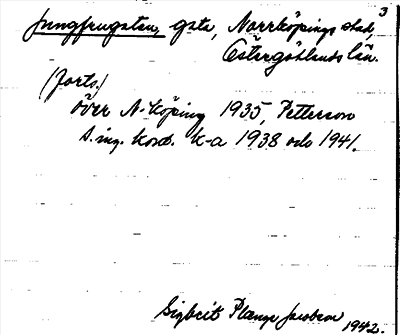 3
Jungfrugatan, gata, Norrköpings stad,
Östergötlands län.
(Forts.)
över N-köping 1935, Petterson
s. ing. kons. k-a 1938 och 1941.
Sigbrit Plænge Jacobson
1942.